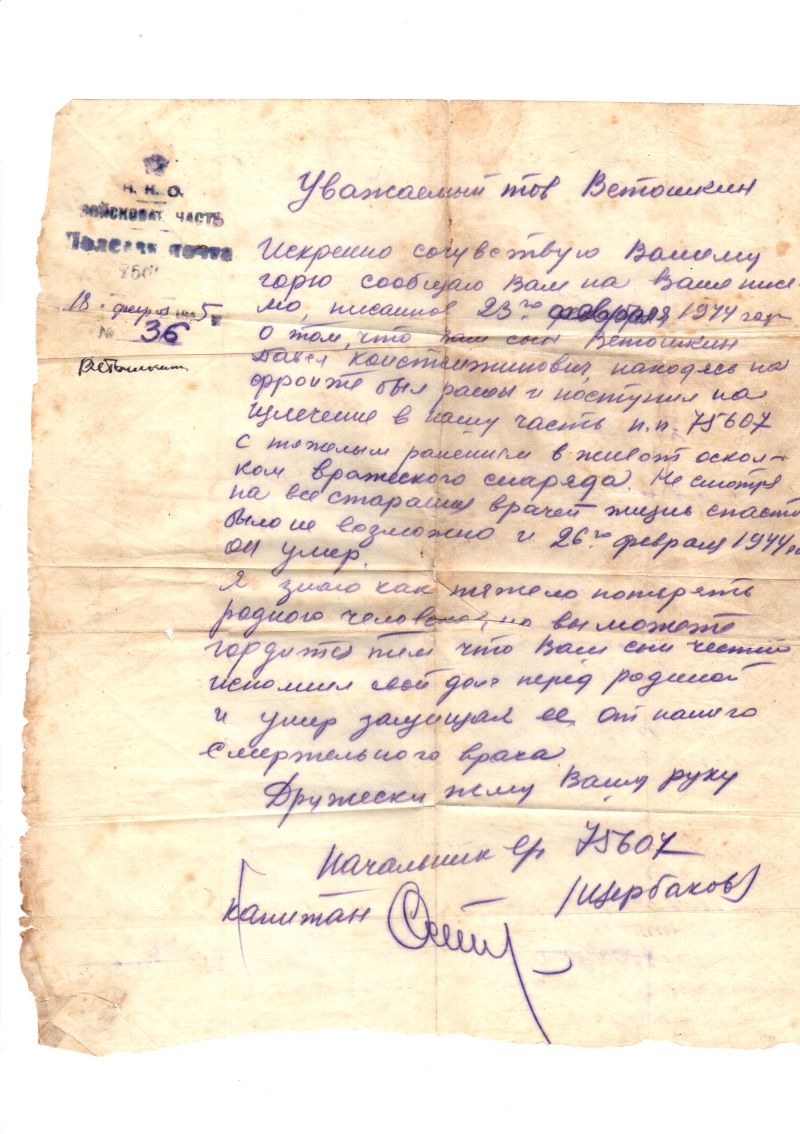 Н. К. О.
ВОЙСКОВАЯ ЧАСТЬ
Полевая почта
18 февр 1945 г
№ 36
Ветошкин
Уважаемый тов Ветошкин
Искренно сочувствую Вашему
горю сообщаю Вам на Ваше пись-
мо, писанное 23го февраля 1944 год
о том, что Ваш сын Ветошкин
Павел Константинович, находясь на
фронте был ранен и поступил на
излечение в нашу часть п.п. 75607
с тяжелым ранением в живот оскол-
ком вражеского снаряда. Не смотря
на все старания врачей жизнь спасти
было не возможно и 26го февраля 1944 го
он умер.
Я знаю как тяжело потерять
родного человека, но вы можете
гордится тем что Ваш сын честно
исполнил свой долг перед родиной
и умер защищая ее от нашего
смертельного врага
Дружески жму Вашу руку
Начальник 75607
Капитан (Щербаков)